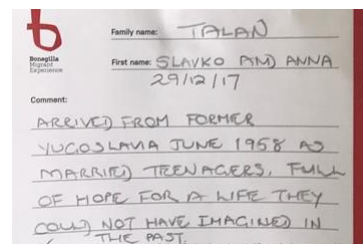 Family name: TALAN
Bonegilla
Migrant
Experience
First name: SLAVKO AND ANNA
29/12/17
Comment:
ARRIVED FROM FORMER
YUGOSLAVIA JUNE 1958 AS
MARRIED TEENAGERS, FULL
OF HOPE FOR A LIFE THEY
COULD NOT HAVE IMAGINED IN
THE PAST.